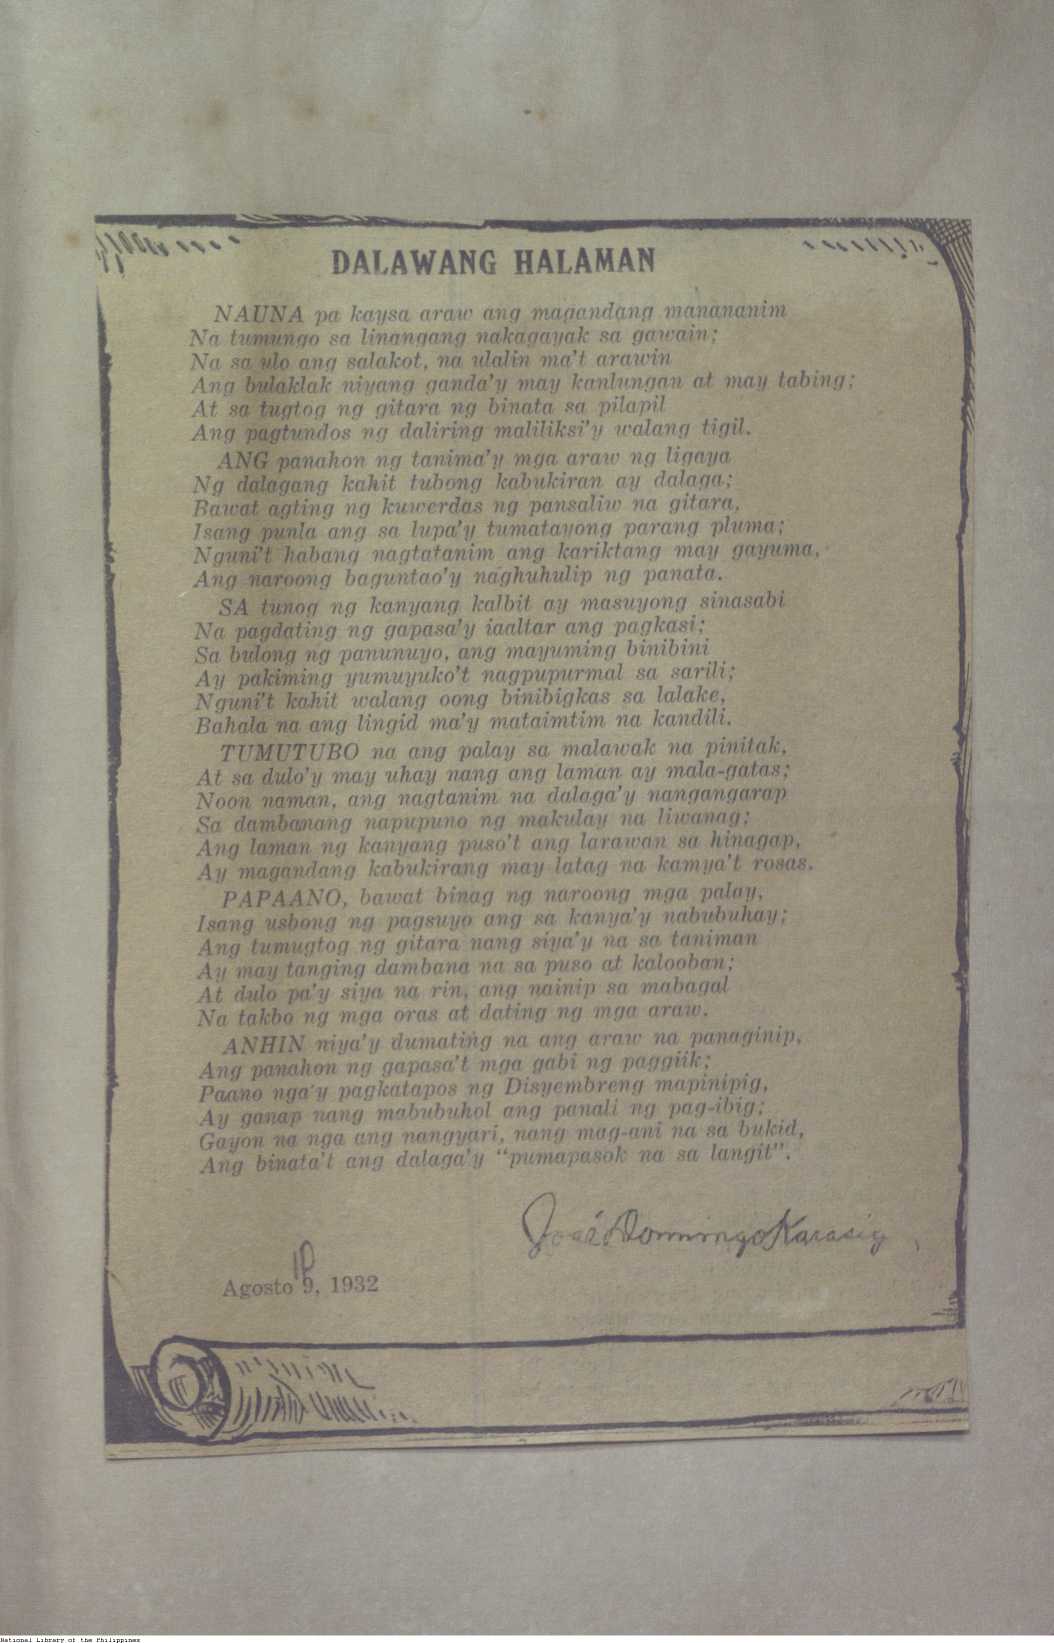 DALAWANG HALAMAN
NAUNA pa kaysa araw ang magandang manananim
Na tumungo sa linangang nakagayak sa gawain;
Na sa ulo ang salakot, na ulalin ma't arawin
Ang bulaklak niyang ganda'y may kanlungan at may tabing;
At sa tugtog ng gitara ng binata sa pilapil
Ang pagtundos ng daliring maliliksi'y walang tigil.
ANG panahon ng tanima'y mga araw ng ligaya
Ng dalagang kahit tubong kabukiran ay dalaga;
Bawat agting ng kuwerdas ng pansaliw na gitara,
Isang punla ang sa lupa'y tumatayong parang pluma;
Nguni't habang nagtatanim ang kariktang may gayuma,
Ang naroong baguntao'y naghuhulip ng panata.
SA tunog ng kanyang kalbit ay masuyong sinasabi
Na pagdating ng gapasa'y iaaltar ang pagkasi;
Sa bulong ng panunuyo, ang mayuming binibini
Ay pakiming yumuyuko't nagpupurmal sa sarili;
Nguni't kahit walang oong binibigkas sa lalake,
Bahala na ang lingid ma'y mataimtim na kandili.
TUMUTUBO na ang palay sa malawak na pinitak,
At sa dulo'y may uhay nang ang laman ay mala-gatas;
Noon naman, ang nagtanim na dalaga'y nangangarap
Sa dambanang napupuno ng makulay na liwanag;
Ang laman ng kanyang puso't ang larawan sa hinagap,
Ay magandang kabukirang may latag na kamya't rosas.
PAPAANO, bawat binag ng naroong mga palay,
Isang usbong ng pagsuyo ang sa kanya'y nabubuhay;
Ang tumugtog ng gitara nang siya'y na sa taniman
Ay may tanging dambana na sa puso at kalooban;
At dulo pa'y siya na rin, ang nainip sa mabagal
Na takbo ng mga oras at dating ng mga araw.
ANHIN niya'y dumating na ang araw na panaginip,
Ang panahon ng gapasa't mga gabi ng paggiik;
Paano nga'y pagkatapos ng Disyembreng mapinipig,
Ay ganap nang mabubuhol ang panali ng pag-ibig;
Gayon na nga ang nangyari, nang mag-ani na sa bukid,
Ang binata't ang dalaga'y "pumapasok na sa langit".
José Domingo Karasig
Agosto 9, 1932
National Library of the Philippines